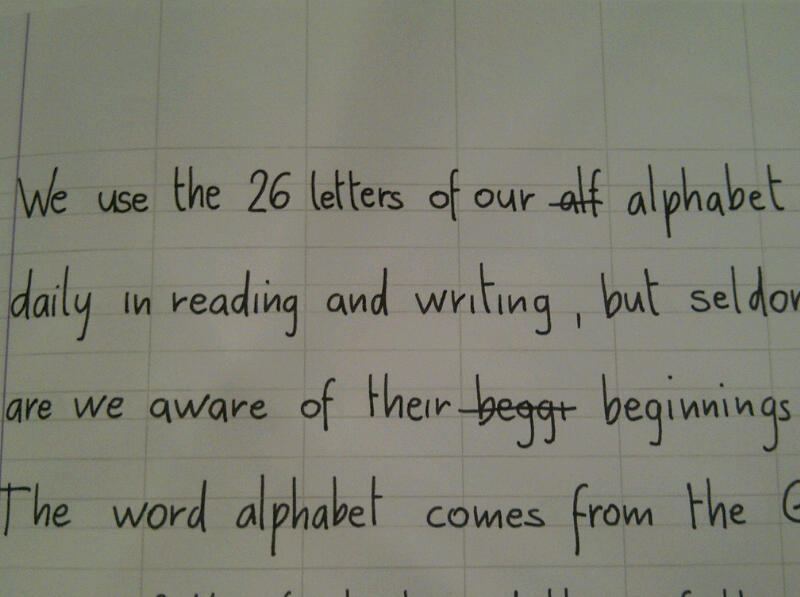 We use the 26 letters of our alf alphabet
daily in reading and writing, but seldom
are we aware of their beggi beginnings
The word alphabet comes from the G